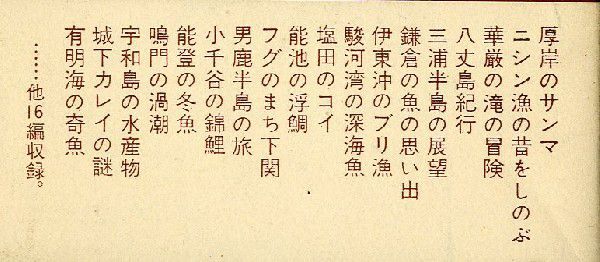 厚岸のサンマ
ニシン漁の昔をしのぶ
華厳の滝の冒険
八丈島紀行
三浦半島の展望
鎌倉の魚の思い出
伊東沖のブリ漁
駿河湾の深海魚
塩田のコイ
能池の浮鯛
フグのまち下関
男鹿半島の旅
小千谷の錦鯉
能登の冬魚
鳴門の渦潮
宇和島の水産物
城下カレイの謎
有明海の奇魚
……他16編収録。